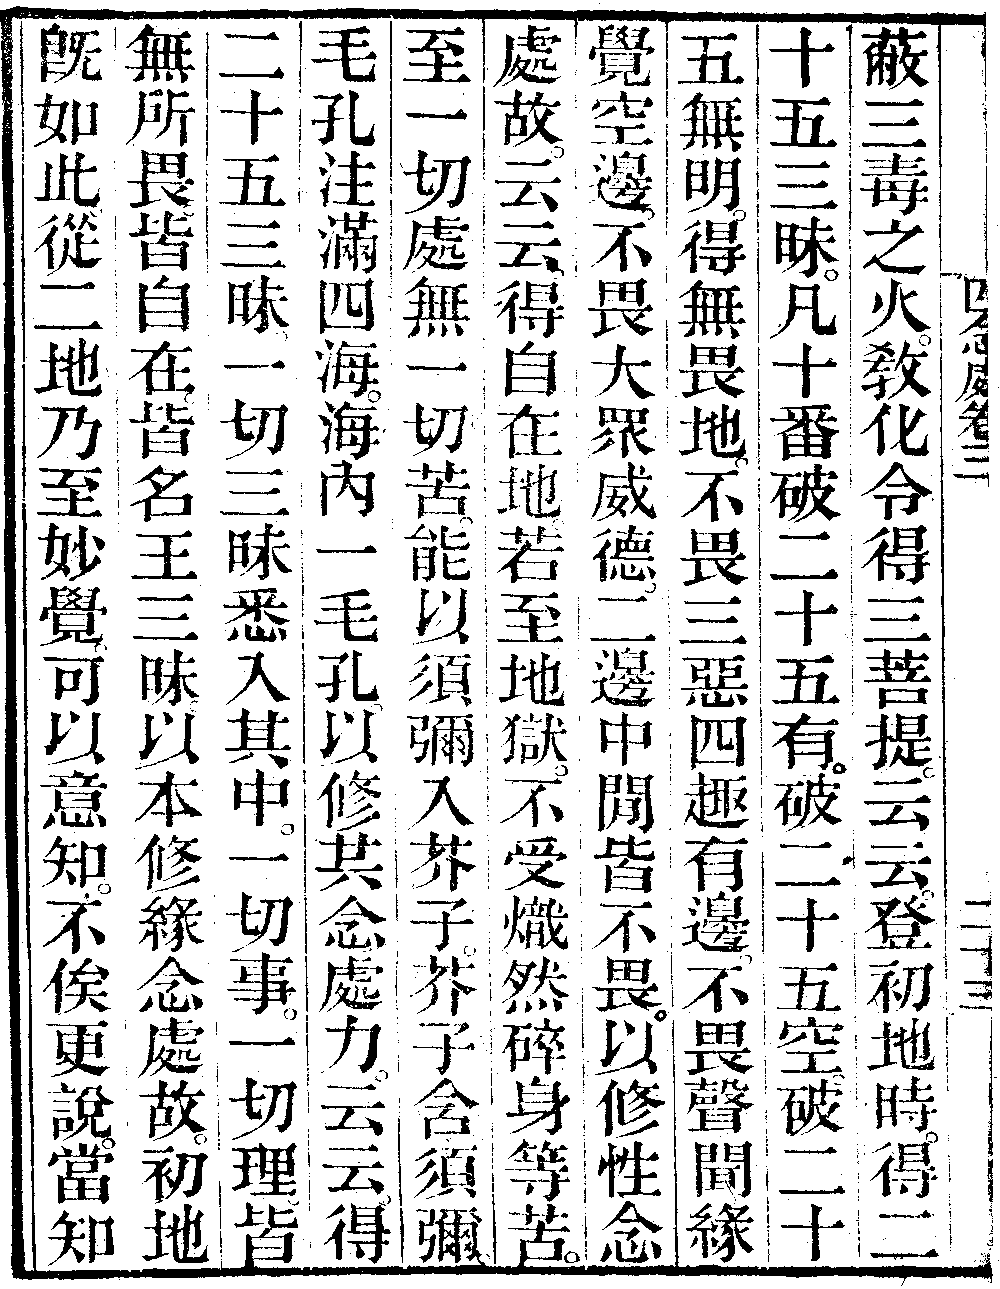 四念處卷三
二十三
蔽三毒之火。教化令得三菩提。云云。登初地時。得二
十五三昧。凡十番破二十五有。破二十五空。破二十
五無明。得無畏地。不畏三惡四趣有邊。不畏聲聞緣
覺空邊。不畏大眾威德。二邊中閒皆不畏。以修性念
處故。云云。得自在地。若至地獄。不受熾然碎身等苦。
至一切處無一切苦。能以須彌入芥子。芥子含須彌。
毛孔注滿四海。海內一毛孔。以修其念處力。云云。得
二十五三昧。一切三昧悉入其中。一切事。一切理。皆
無所畏。皆自在。皆名王三昧。以本修緣念處故。初地
旣如此。從二地乃至妙覺。可以意知。不俟更說。當知